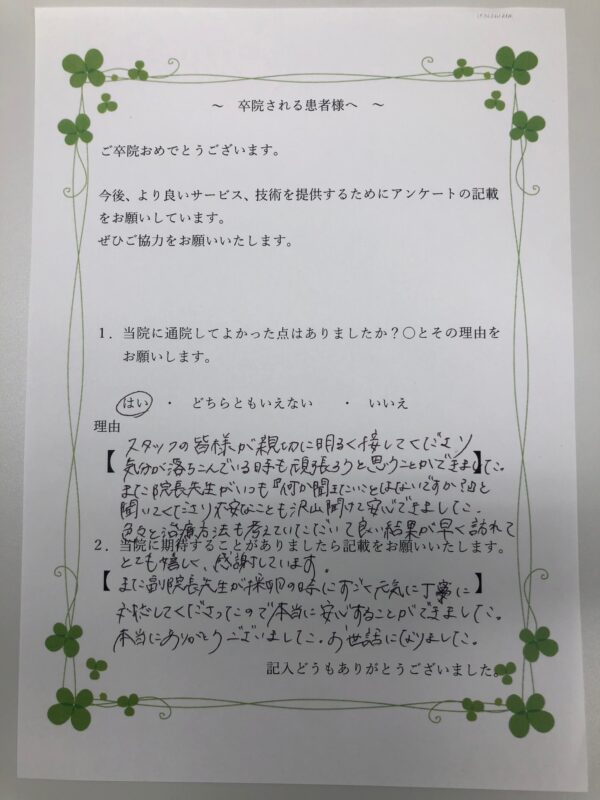 ～　卒院される患者様へ　～
ご卒院おめでとうございます。
今後、より良いサービス、技術を提供するためにアンケートの記載
をお願いしています。
ぜひご協力をお願いいたします。
1．当院に通院してよかった点はありましたか？○とその理由を
お願いします。
はい　・　どちらともいえない　・　いいえ
理由
スタッフの皆様が親切に明るく接してくださり
【気分が落ちこんでいる時も頑張ろうと思うことができました。】
また院長先生がいつも『何か聞きたいことはないですか?』と
聞いてくださり不安なことも沢山聞けて安心できました。
色々と治療方法も考えていただいて良い結果が早く訪れて
2．当院に期待することがありましたら記載をお願いいたします。
とても嬉しく、感謝しています。
【また副院長先生が採卵の時にすごく元気に丁寧に
対応してくださったので本当に安心することができました。
本当にありがとうございました。お世話になりました。
記入どうもありがとうございました。